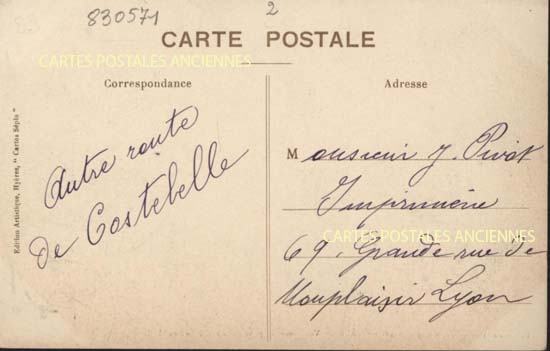 830571
2
CARTE POSTALE
CARTES POSTALES ANCIENNES
Correspondance
Adresse
Edition Artistique, Hyères, " Cartes Sépia "
Autre route
de Costebelle
Monsieur J. Pivot
Imprimerie
CARTES POSTALES ANCIENNES
69, Grande rue de
Monplaisir Lyon